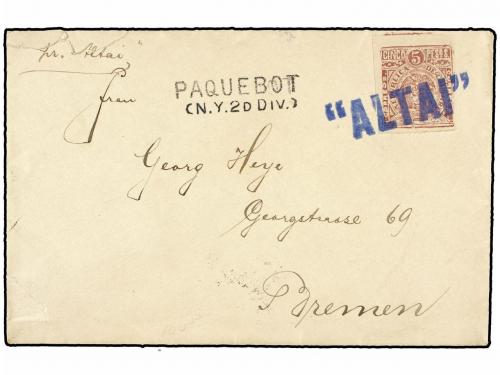 pr. "Altai"
Frau
PAQUEBOT
(N.Y. 2D DIV.)
CINCO 5 PESOS
"ALTAI"
Georg Heye
Georgstrasse 69
Bremen